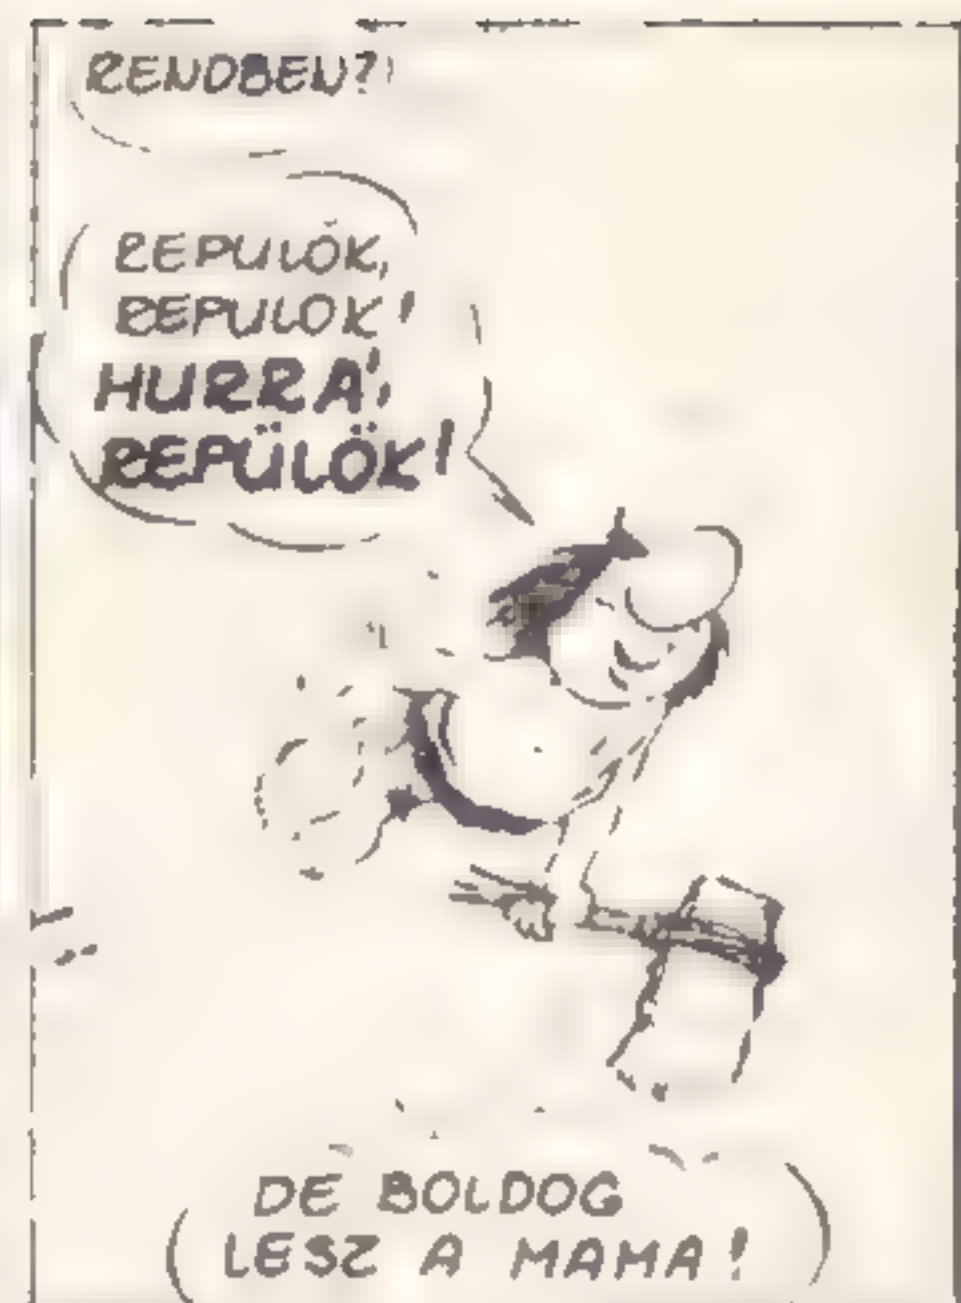 RENDBEN?
REPULŐK,
REPULOK!
HURRÁ,
REPÜLÖK!
DE BOLDOG
LESZ A MAMA!